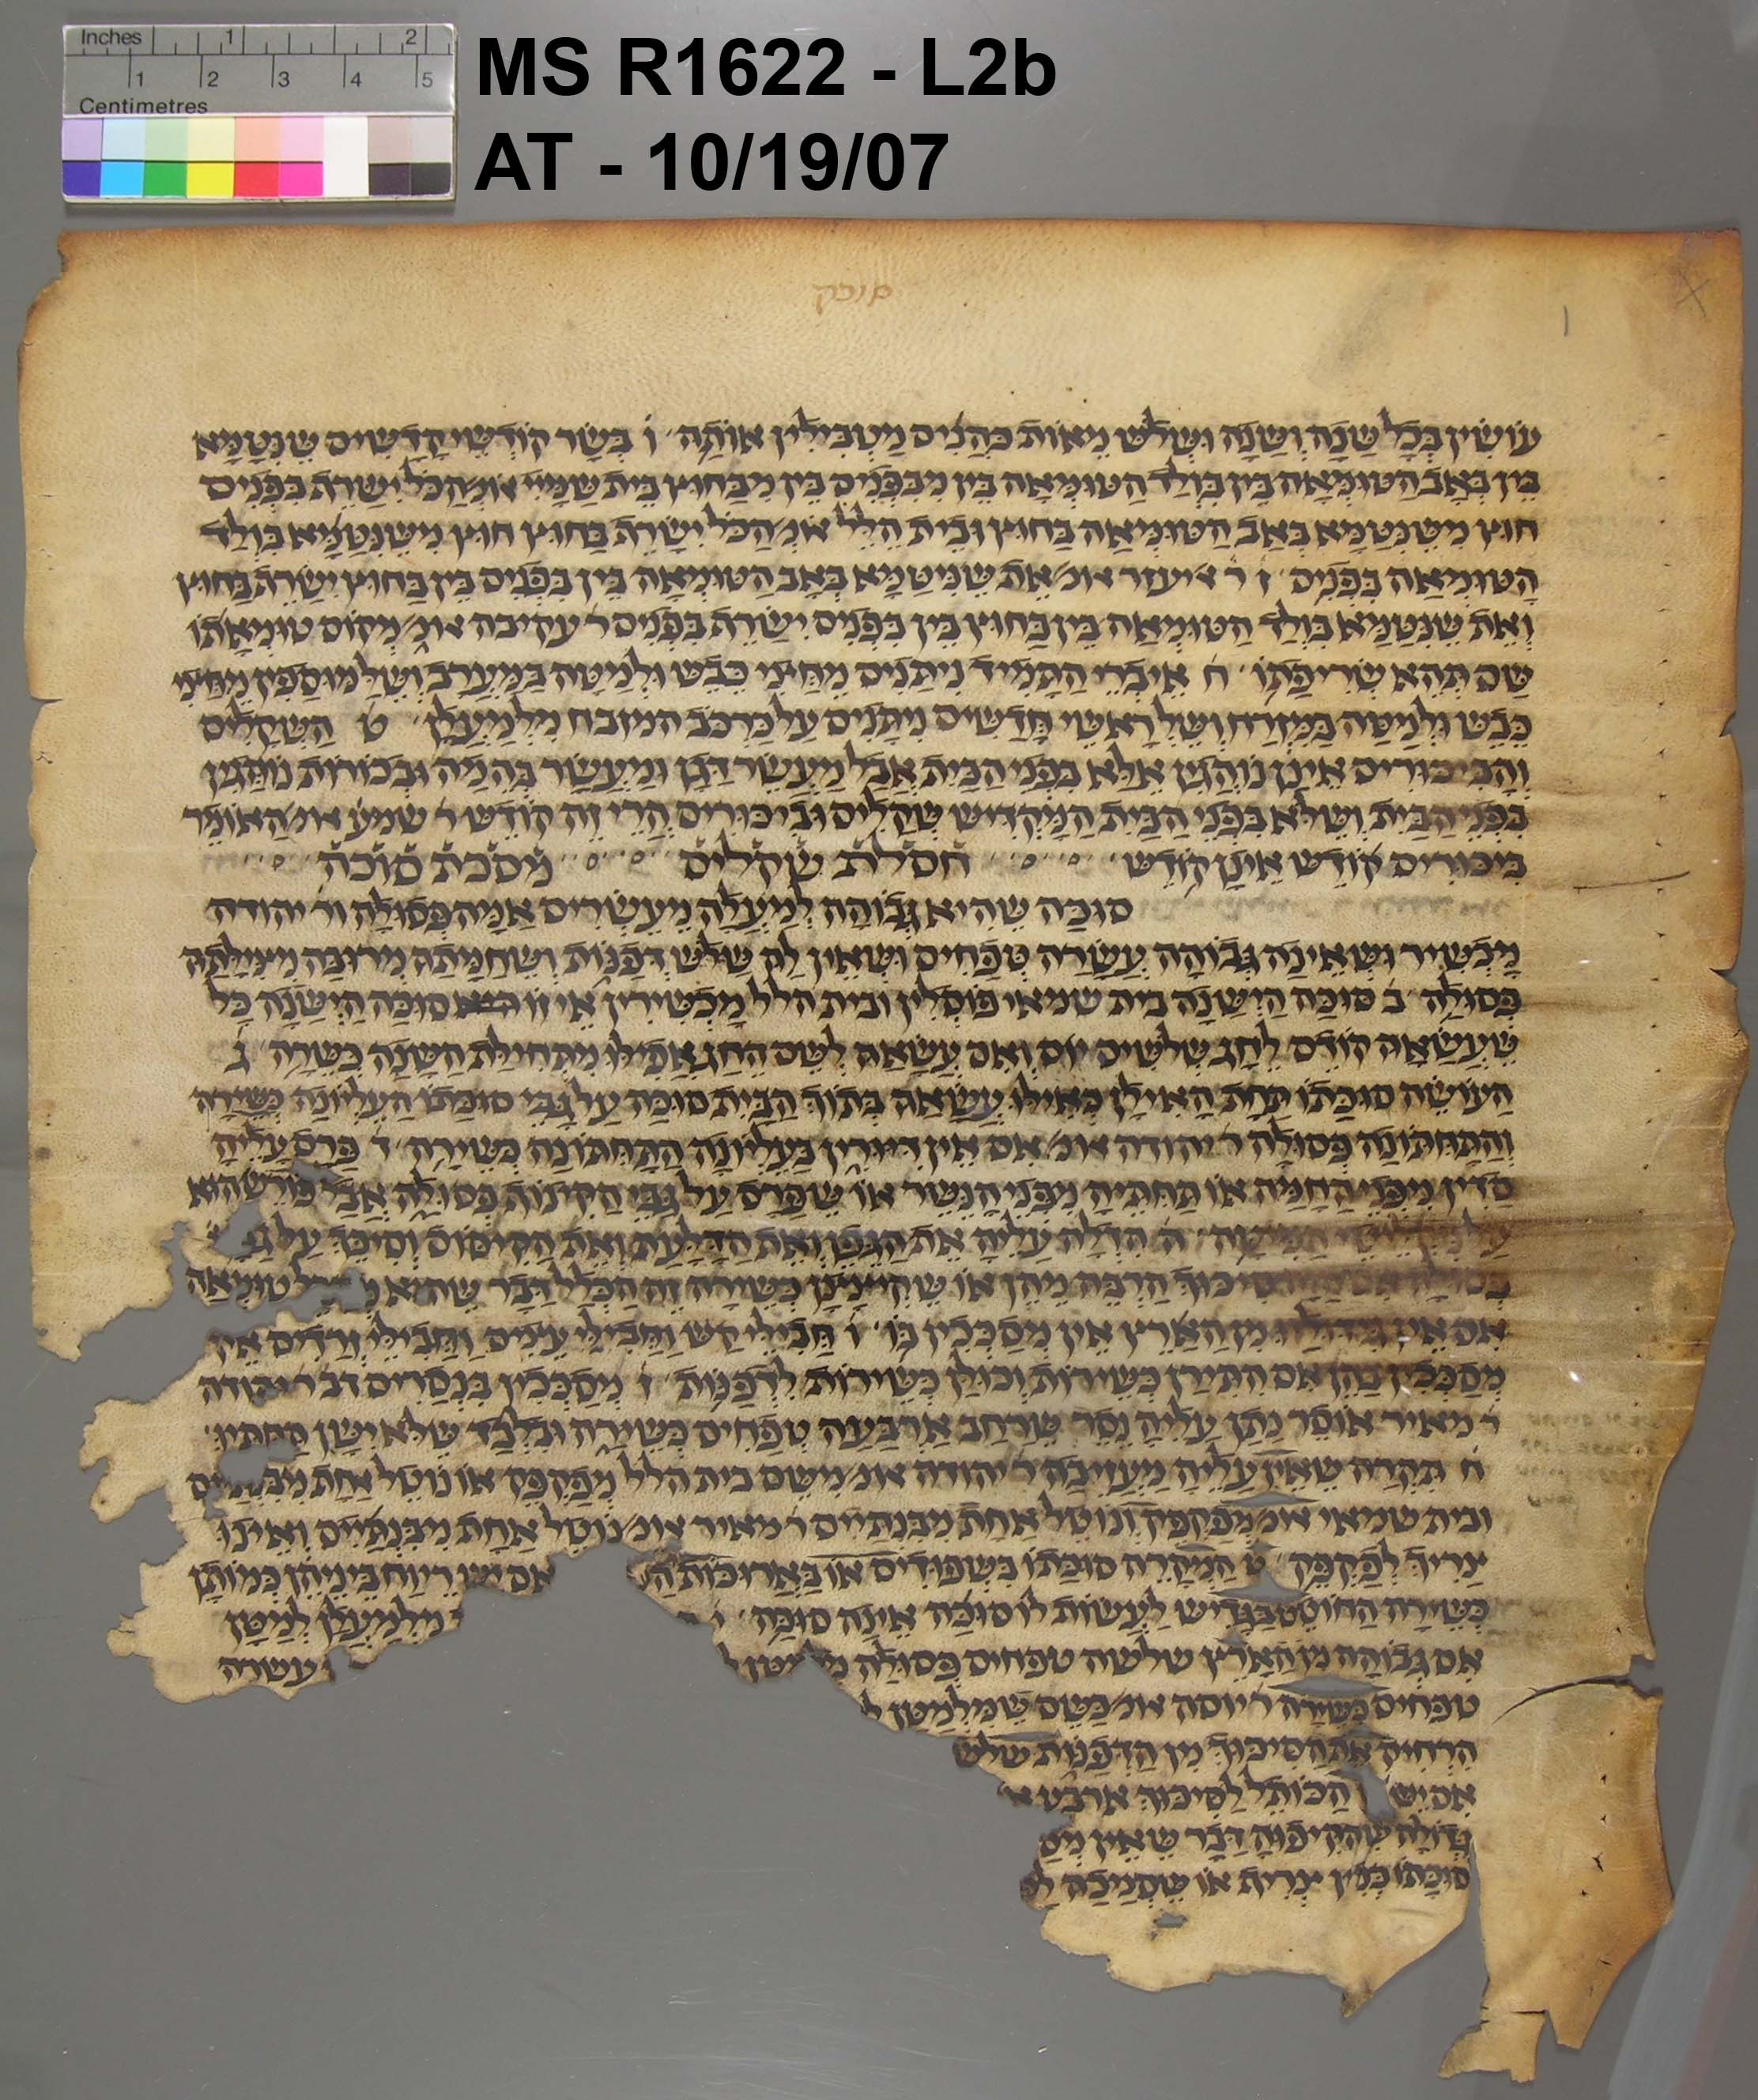 Inches 1 2
1 2 3 4 5
Centimetres
MS R1622 - L2b
AT - 10/19/07
סוכה
עושין בכל שנה ושנה ושלש מאות כהנים מטבילין אותה ו בשר קודשי קדשים שנטמא
בין באב הטומאה בין בולד הטומאה בין מבפנים בין מבחוץ בית שמיי אומ' הכל ישרף בפנים
חוץ משנטמא באב הטומאה בחוץ ובית הלל אומ' הכל ישרף בחוץ חוץ משנטמא בולד
הטומאה בפנים ז ר' ליעזר אומ' את שניטמא באב הטומאה בין בפנים בין בחוץ ישרף בחוץ
ואת שנטמא בולד הטומאה בין בחוץ בין בפנים ישרף בפנים ר' עקיבה אומ' מקום טומאתו
שם תהא שריפתו ח איברי התמיד ניתנים מחצי כבש ולמטה במערב ושלמוספין מחצי
כבש ולמטה במזרח ושלראשי חדשים נתנים על כרכב המזבח מלמעלן ט השקלים
והביכורים אינן נוהגין אלא בפני הבית אבל מעשר דגן ומעשר בהמה ובכורות נוהגין
בפני הבית ושלא בפני הבית המקדיש שקלים וביכורים הרי זה קודש ר' שמע' אומ' האומר
ביכורים קודש אינן קודש חסלת שקלים מסכת סוכה
סוכה שהיא גבוהה למעלה מעשרים אמה פסולה ור' יהודה
מכשיר ושאינה גבוהה עשרה טפחים ושאין לה שלש דפנות ושחמתה מרובה מצילתה
פסולה ב סוכה הישנה בית שמאי פוסלין ובית הלל מכשירין אי זו היא סוכה הישנה כל
שעשאה קודם לחג שלשים יום ואם עשאה לשם החג אפילו מתחילת השנה כשרה ג
העושה סוכתו תחת האילן כאילו עשאה בתוך הבית סוכה על גבי סוכה העליונה כשירה
והתחתונה פסולה ר' יהודה אומ' אם אין דיורין בעליונה התחתונה כשירה ד פרס עליה
סדין מפני החמה או תחתיה מפני הנשר או שפרס על גבי הקינוף פסולה אבל פורש הוא
על ה הדלה עליה את הגפן ואת הדלעת ואת הקיסוס וסיכך על
פסולה סיכוך הרבה מהן או שקיצצן כשירה זה הכלל דבר שהוא טומאה
אם אין גידולו מן הארץ אין מסככין בו ו חבילי קש וחבילי עצים וחבילי זרדים אין
מסככין בהן אם התירן כשירות וכולן כשירות לדפנות ז מסככין בנסרים דבר' ר' יהודה
ר' מאיר אוסר נתן עליה נסר שרחב ארבעה טפחים כשירה ובלבד שלא ישן תחתיו
ח תקרה שאין עליה מעזיבה ר' יהודה אומ' משם בית הלל מפקפק או נוטל אחת
ובית שמאי אומ' מפקפק ונוטל אחת מבנתיים ר' מאיר אומ' נוטל אחת מבנתיים ואינו
צריך לפקפק ט המקרה סוכתו בשפודים או בארוכות אם יש ריוח ביניהן כמותן
כשירה החוטט בגדיש לעשות לו סוכה אינה סוכה מלמעלן למטן
אם גבוהה מן הארץ שלשה טפחים פסולה עשרה
טפחים כשירה ר' יוסה אומ' כשם שמלמטן
הרחיק את הסיכוך מן הדפנות שלש
הכותל לסיכוך ארבע
גדולה שהקיפוה דבר שאין
סוכתו כמין צריף או שסמכה